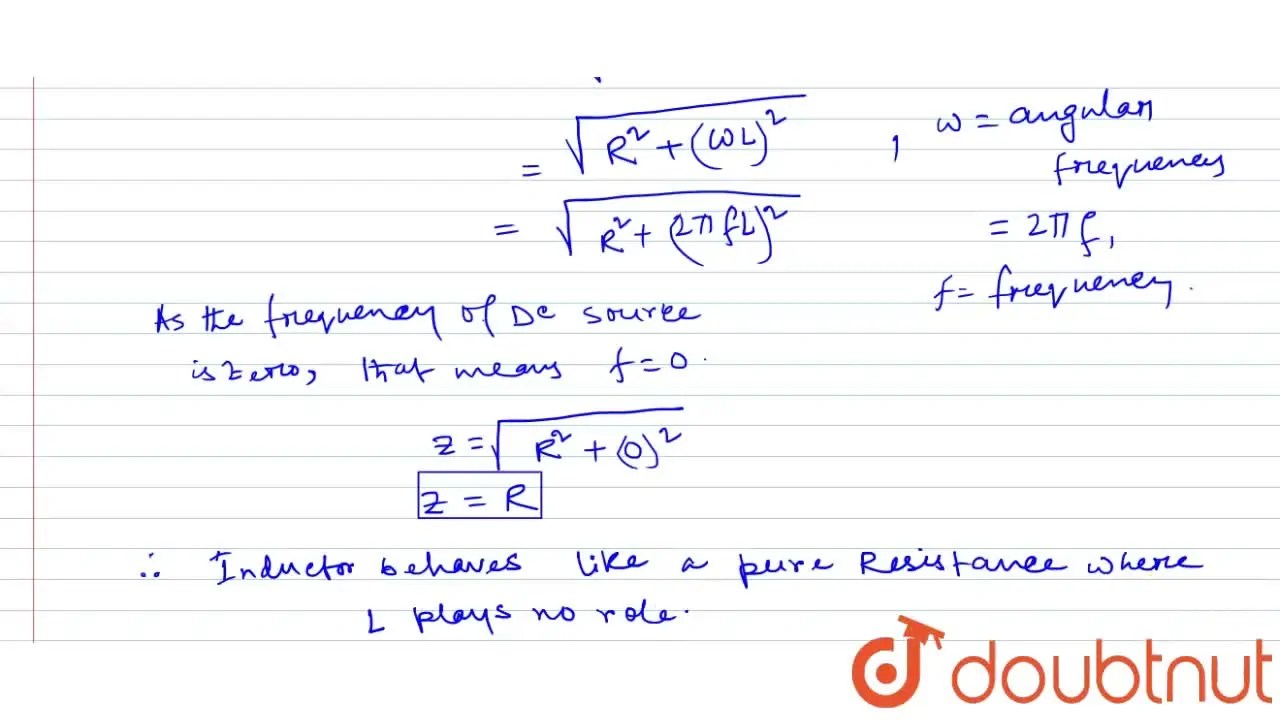 = √(R² + (ωL)²) , ω = angular
frequency
= √(R² + (2πfL)²) = 2πf,
f = frequency.
As the frequency of DC source
is zero, that means f = 0.
Z = √(R² + (0)²)
Z = R
∴ Inductor behaves like a pure Resistance where
L plays no role.
doubtnut